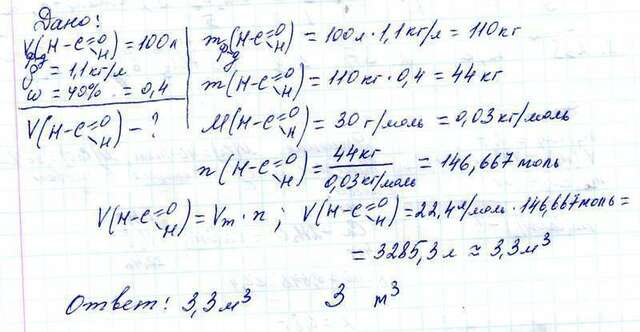 Дано:
V р-ра (H-C=O H) = 100л
ρ = 1,1кг/л
ω = 40% = 0,4
V(H-C=O H) - ?
m р-ра (H-C=O H) = 100л · 1,1кг/л = 110кг
m(H-C=O H) = 110кг · 0,4 = 44кг
M(H-C=O H) = 30 г/моль = 0,03 кг/моль
n(H-C=O H) = 44кг / 0,03кг/моль = 146,667 моль
V(H-C=O H) = Vm · n ; V(H-C=O H) = 22,4л/моль · 146,667моль =
= 3285,3л ≈ 3,3м³
Ответ: 3,3м³ 3 м³